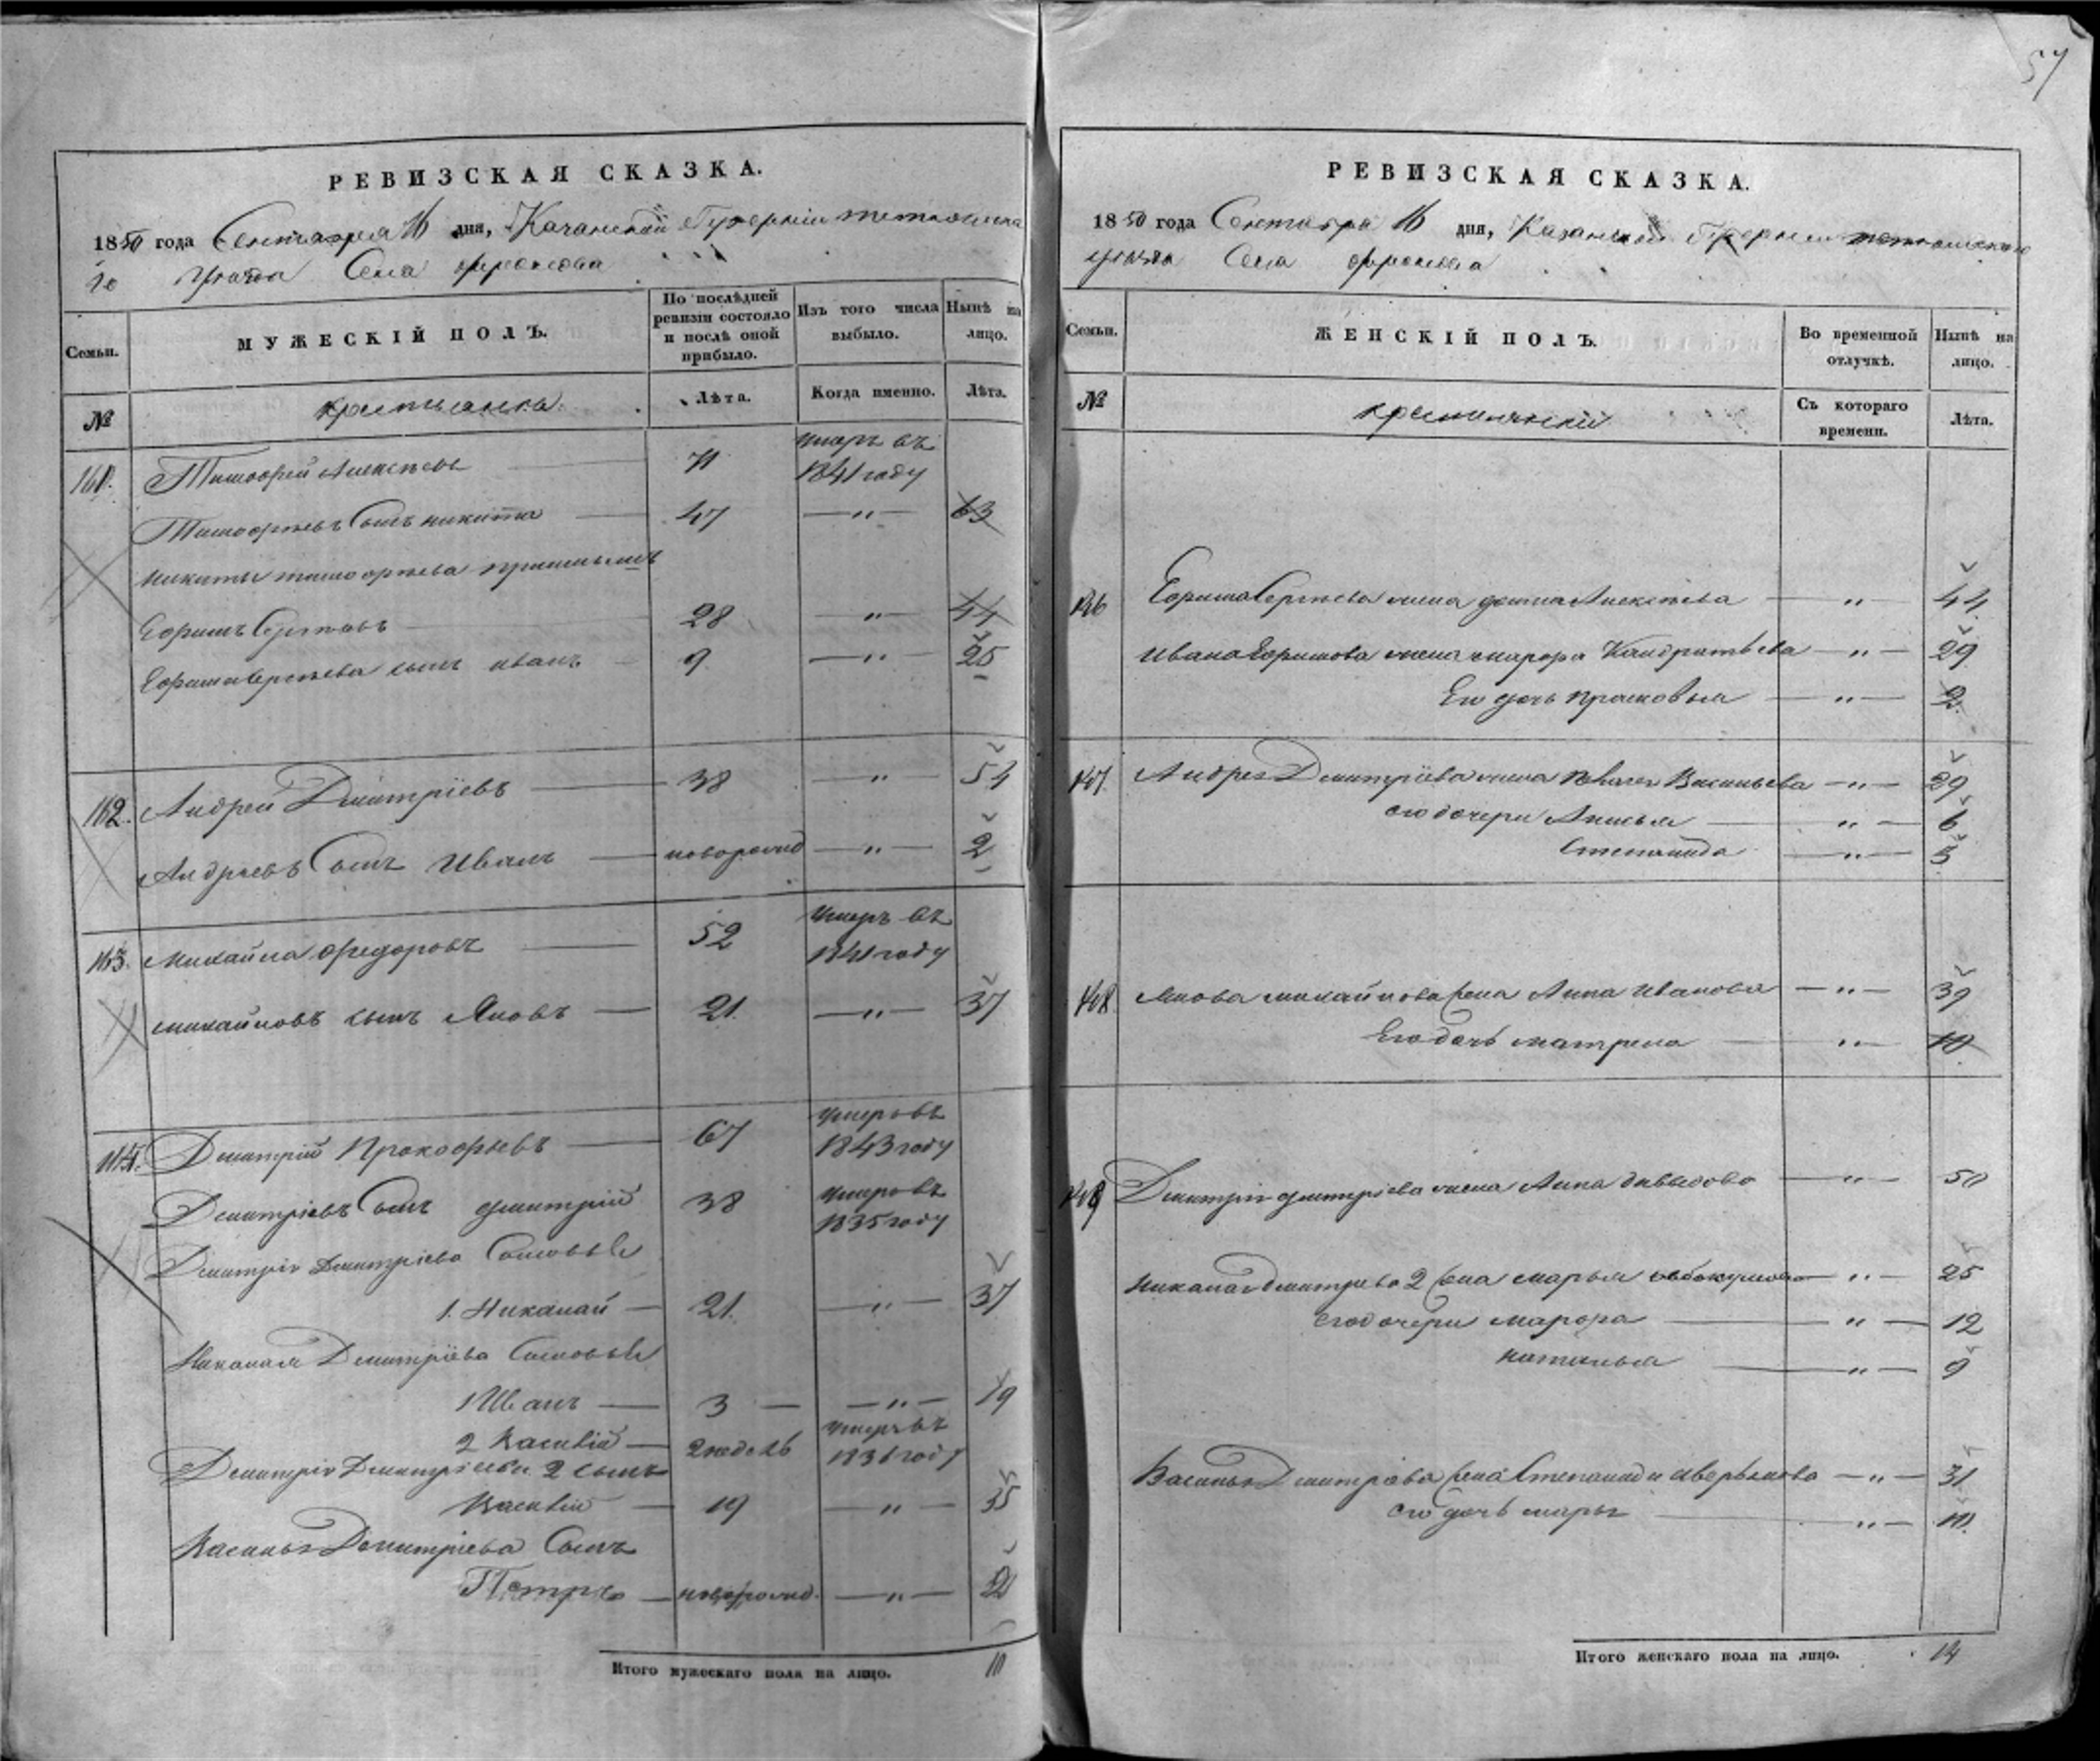 57
РЕВИЗСКАЯ СКАЗКА.
1850 года Сентября 16 дня, Казанской Губернии тетюшска
го уезда Села фролова
Семьи.
МУЖЕСКІЙ ПОЛЪ.
По послѣдней ревизіи состояло и послѣ оной прибыло.
Изъ того числа выбыло.
Нынѣ на лицо.
№
Лѣта.
Когда именно.
Лѣта.
161. Тимофей Алексѣевъ — 71 умеръ въ 1841 году
Тимофѣевъ Сынъ никита — 47 — " — 63
никиты тимофѣева приимышъ
Ефимъ Сергѣевъ — 28 " — 44
Ефима Сергѣева сынъ иванъ — 9 — " — 25
162. Андрей Дмитріевъ — 38 — " — 54
Андреевъ Сынъ Иванъ — новорожд — " — 2
163. Михайла Федоровъ — 52 умеръ въ 1841 году
михайловъ сынъ Яковъ — 21. — " — 37
Дмитрій Прокофьевъ — 67 умеръ въ 1843 году
Дмитріевъ Сынъ дмитрій 38 умеръ въ 1835 году
Дмитрія Дмитріева Сыновья
1. Николай — 21. — " — 37
Николая Дмитріева Сыновья
1 Иванъ — 3 — — " — 19
2 Василій — 2 недель умеръ въ 1836 году
Дмитрія Дмитріева 2 сынъ
Василій — 19 — " — 35
Василья Дмитріева Сынъ
Петръ — новорожд. — " — 2
Итого мужескаго пола на лицо. 10
РЕВИЗСКАЯ СКАЗКА.
1850 года Сентября 16 дня, Казанской Губернии тетюшскаго
уезда Села фролова
Семьи.
ЖЕНСКІЙ ПОЛЪ.
Во временной отлучкѣ.
Нынѣ на лицо.
№
Съ котораго времени.
Лѣта.
Ефима Сергѣева жена домна Алексѣева — " — 44
Ивана Ефимова жена марфа Кандратьева — " — 29
Его дочь прасковья — " — 2
Андрея Дмитріева жена Васильева — " — 29
его дочери Анисья — " — 6
Степанида — " — 3
Якова михайлова жена Анна Иванова — " — 39
Его дочь матрена — " — 10
Дмитрія дмитріева жена Анна давыдова — " — 50
Николая дмитриева 2 жена марья авбакумова — " — 25
его дочери марфа — " — 12
наталья — " — 9
Василья Дмитріева жена Степанида аверьянова — " — 31
его дочь марья — " — 10.
Итого женскаго пола на лицо. 14